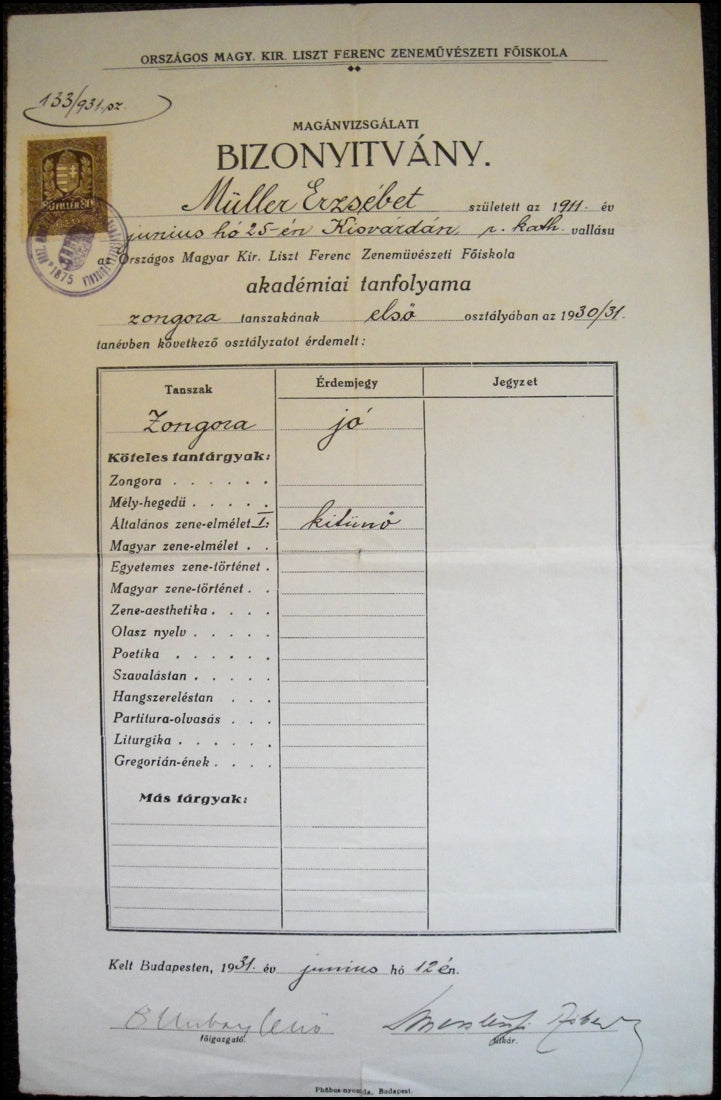 ORSZÁGOS MAGY. KIR. LISZT FERENC ZENEMŰVÉSZETI FŐISKOLA
133/931.sz.
MAGÁNVIZSGÁLATI
BIZONYITVÁNY.
Müller Erzsébet született az 1911. év
junius hó 25-én Kisvárdán, r. kath. vallásu
az Országos Magyar Kir. Liszt Ferenc Zeneművészeti Főiskola
akadémiai tanfolyama
zongora tanszakának első osztályában az 1930/31.
tanévben következő osztályzatot érdemelt:
Tanszak Érdemjegy Jegyzet
Zongora jó
Köteles tantárgyak:
Zongora . . . . . .
Mély-hegedü . . . . .
Általános zene-elmélet I. kitünő
Magyar zene-elmélet . .
Egyetemes zene-történet .
Magyar zene-történet . .
Zene-aesthetika . . . .
Olasz nyelv . . . . .
Poetika . . . . . .
Szavalástan . . . . .
Hangszereléstan . . .
Partitura-olvasás . . .
Liturgika . . . . . .
Gregorián-ének . . . .
Más tárgyak:
Kelt Budapesten, 1931. év junius hó 12 én.
főigazgató. titkár.
Phőbus-nyomda, Budapest.
1875